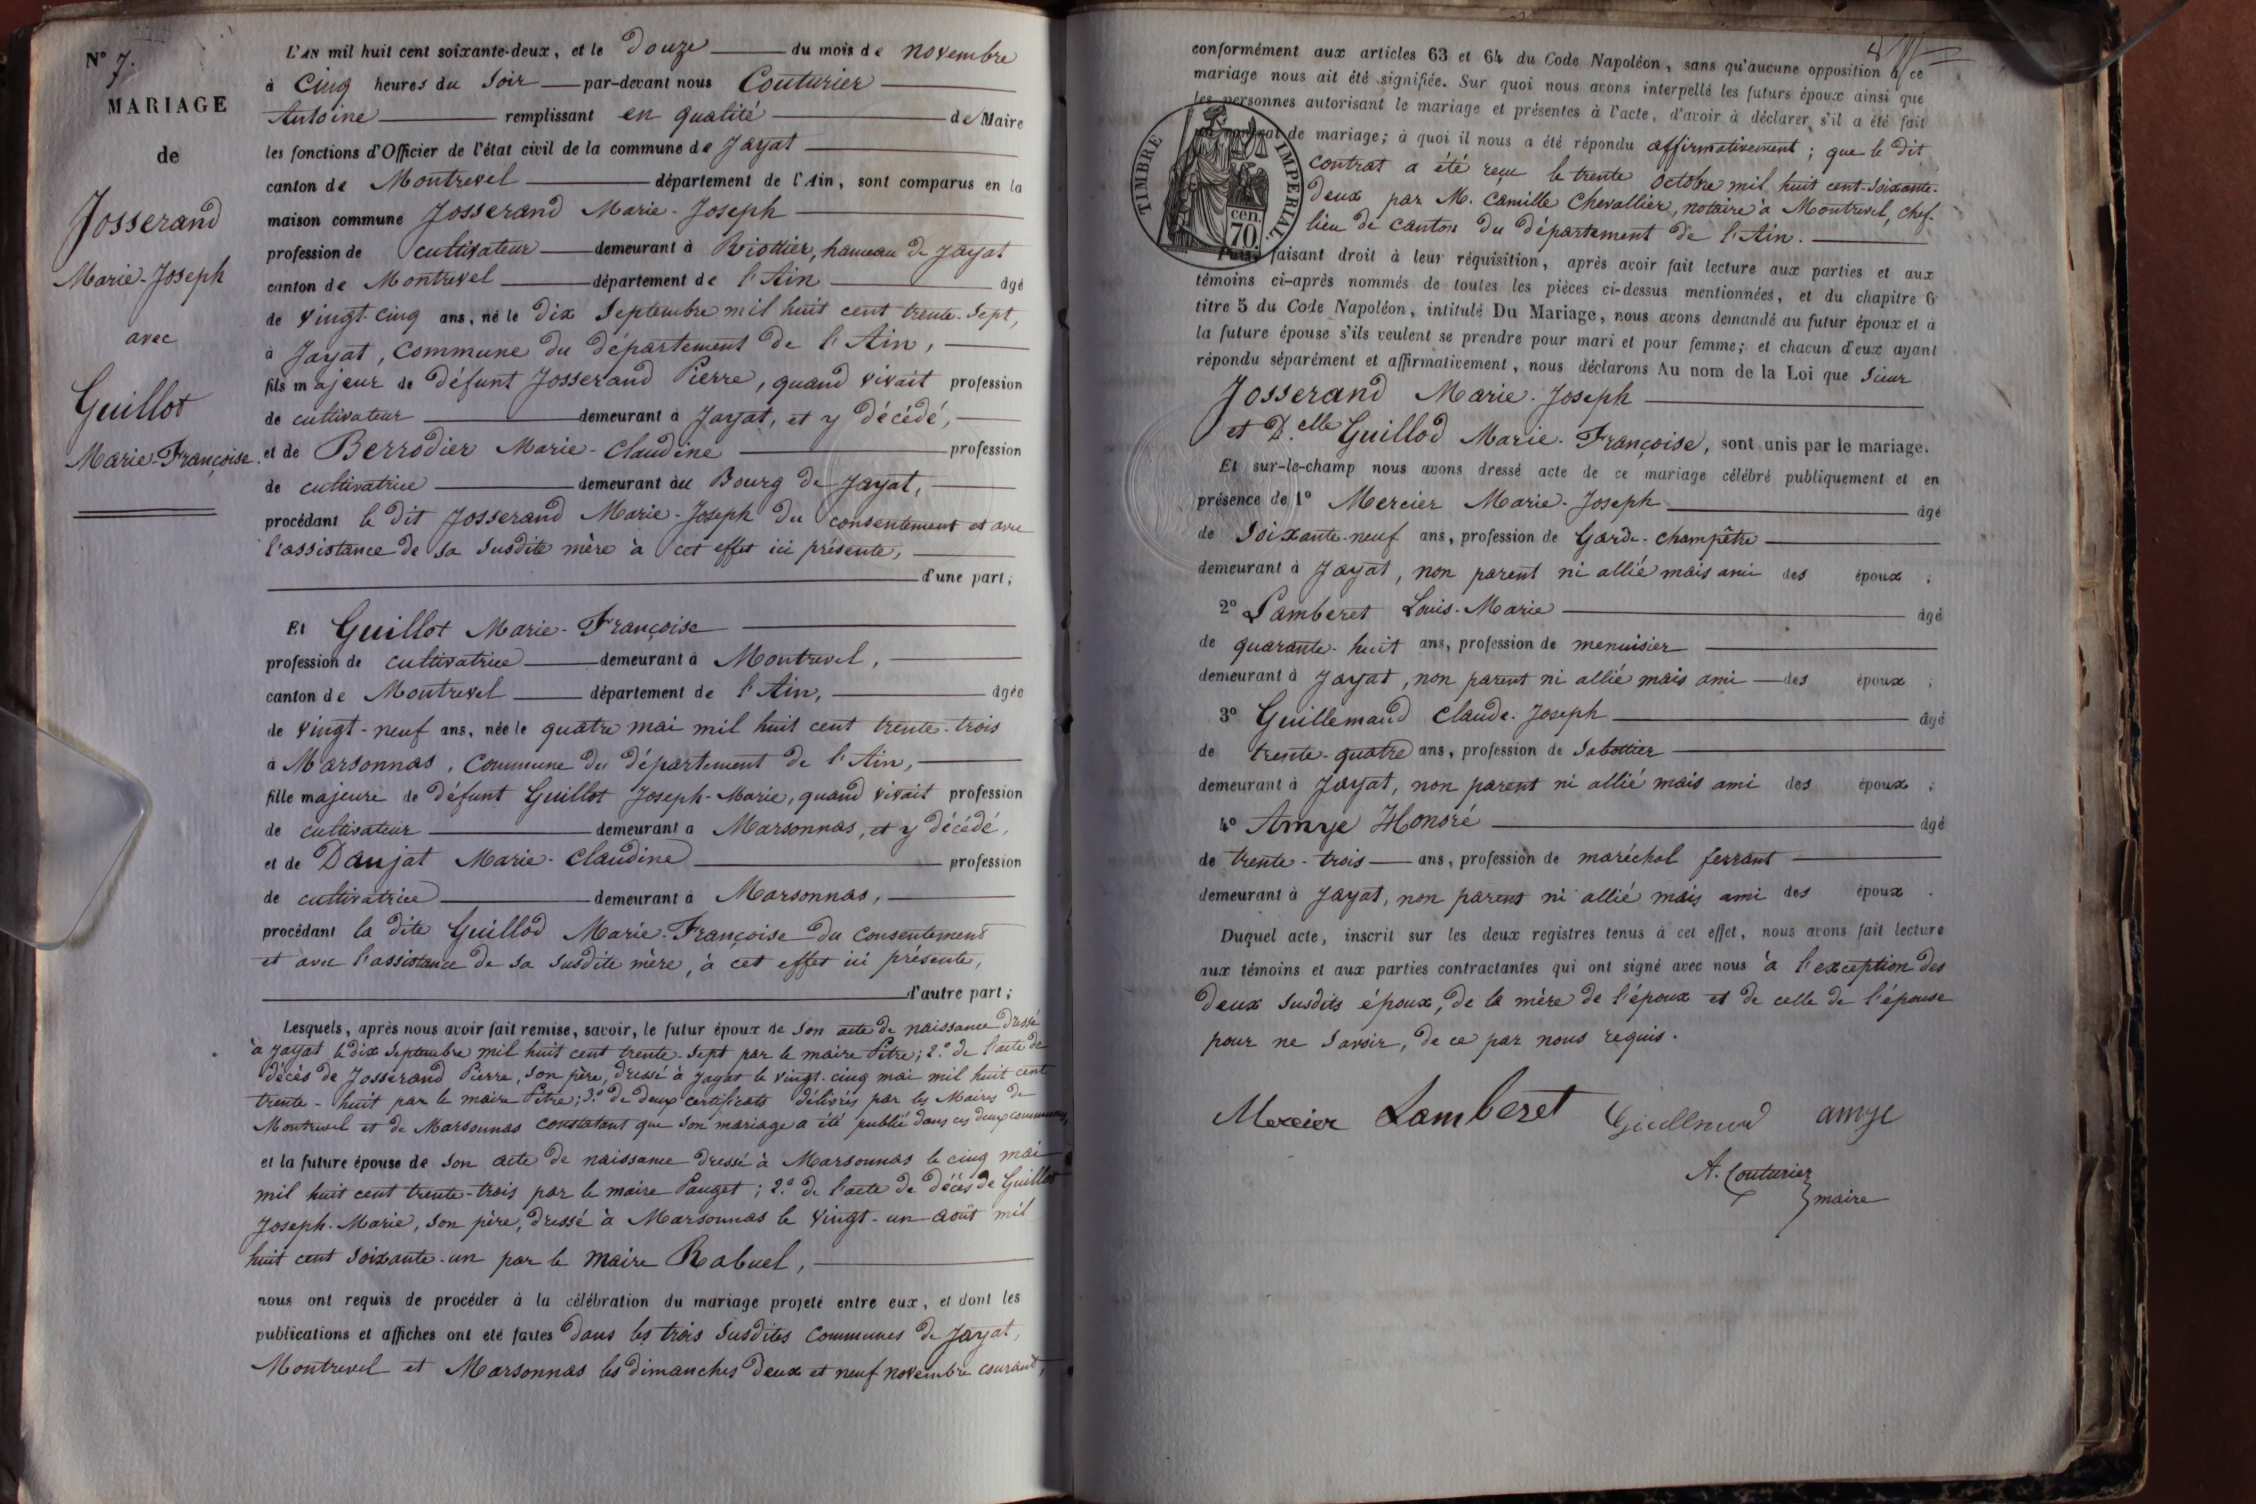 N° 7.
MARIAGE
de
Josserand
Marie-Joseph
avec
Guillot
Marie-Françoise.
L'AN mil huit cent soixante-deux, et le douze du mois de novembre
à cinq heures du soir par-devant nous Couturier
Antoine remplissant en qualité de Maire
les fonctions d'Officier de l'état civil de la commune de Jayat
canton de Montrevel département de l'Ain, sont comparus en la
maison commune Josserand Marie-Joseph
profession de cultivateur demeurant à Riottier, hameau de Jayat
canton de Montrevel département de l'Ain âgé
de vingt-cinq ans, né le dix Septembre mil huit cent trente-sept,
à Jayat, commune du département de l'Ain,
fils majeur de défunt Josserand Pierre, quand vivait profession
de cultivateur demeurant à Jayat, et y décédé,
et de Berrodier Marie-Claudine profession
de cultivatrice demeurant au Bourg de Jayat,
procédant le dit Josserand Marie-Joseph du consentement et avec
l'assistance de sa susdite mère à cet effet ici présente,
d'une part;
Et Guillot Marie-Françoise
profession de cultivatrice demeurant à Montrevel,
canton de Montrevel département de l'Ain, âgée
de vingt-neuf ans, née le quatre mai mil huit cent trente-trois
à Marsonnas, commune du département de l'Ain,
fille majeure de défunt Guillot Joseph-Marie, quand vivait profession
de cultivateur demeurant à Marsonnas, et y décédé,
et de Daujat Marie-Claudine profession
de cultivatrice demeurant à Marsonnas,
procédant la dite Guillod Marie-Françoise du consentement
et avec l'assistance de sa susdite mère, à cet effet ici présente,
d'autre part;
Lesquels, après nous avoir fait remise, savoir, le futur époux de son acte de naissance dressé
à Jayat le dix Septembre mil huit cent trente-sept par le maire Pitre; 2.° de l'acte de
décès de Josserand Pierre, son père, dressé à Jayat le vingt-cinq mai mil huit cent
trente-huit par le maire Pitre; 3.° de deux certificats délivrés par les Maires de
Montrevel et de Marsonnas constatant que son mariage a été publié dans ces deux communes,
et la future épouse de son acte de naissance dressé à Marsonnas le cinq mai
mil huit cent trente-trois par le maire Pauget; 2.° de l'acte de décès de Guillot
Joseph-Marie, son père, dressé à Marsonnas le vingt-un août mil
huit cent soixante-un par le maire Rabuel,
nous ont requis de procéder à la célébration du mariage projeté entre eux, et dont les
publications et affiches ont été faites dans les trois susdites communes de Jayat,
Montrevel et Marsonnas les dimanches deux et neuf novembre courant,
conformément aux articles 63 et 64 du Code Napoléon, sans qu'aucune opposition à ce
mariage nous ait été signifiée. Sur quoi nous avons interpellé les futurs époux ainsi que
les personnes autorisant le mariage et présentes à l'acte, d'avoir à déclarer s'il a été fait
de mariage; à quoi il nous a été répondu affirmativement; que le dit
contrat a été reçu le trente octobre mil huit cent-soixante-
deux par M. Camille Chevallier, notaire à Montrevel, chef-
lieu de canton du département de l'Ain.
TIMBRE IMPERIAL.
cen.
70
Puis, faisant droit à leur réquisition, après avoir fait lecture aux parties et aux
témoins ci-après nommés de toutes les pièces ci-dessus mentionnées, et du chapitre 6
titre 5 du Code Napoléon, intitulé Du Mariage, nous avons demandé au futur époux et à
la future épouse s'ils veulent se prendre pour mari et pour femme; et chacun d'eux ayant
répondu séparément et affirmativement, nous déclarons Au nom de la Loi que Sieur
Josserand Marie-Joseph
et D.elle Guillod Marie-Françoise, sont unis par le mariage.
Et sur-le-champ nous avons dressé acte de ce mariage célébré publiquement et en
présence de 1° Mercier Marie-Joseph âgé
de soixante-neuf ans, profession de Garde-champêtre
demeurant à Jayat, non parent ni allié mais ami des époux;
2° Lamberet Louis-Marie âgé
de quarante-huit ans, profession de menuisier
demeurant à Jayat, non parent ni allié mais ami des époux;
3° Guillemaud Claude-Joseph âgé
de trente-quatre ans, profession de sabottier
demeurant à Jayat, non parent ni allié mais ami des époux;
4° Amye Honoré âgé
de trente-trois ans, profession de maréchal ferrant
demeurant à Jayat, non parent ni allié mais ami des époux.
Duquel acte, inscrit sur les deux registres tenus à cet effet, nous avons fait lecture
aux témoins et aux parties contractantes qui ont signé avec nous à l'exception des
deux susdits époux, de la mère de l'époux et de celle de l'épouse
pour ne savoir, de ce par nous requis.
Mercier Lamberet Guillemaud amye
A. Couturier
maire